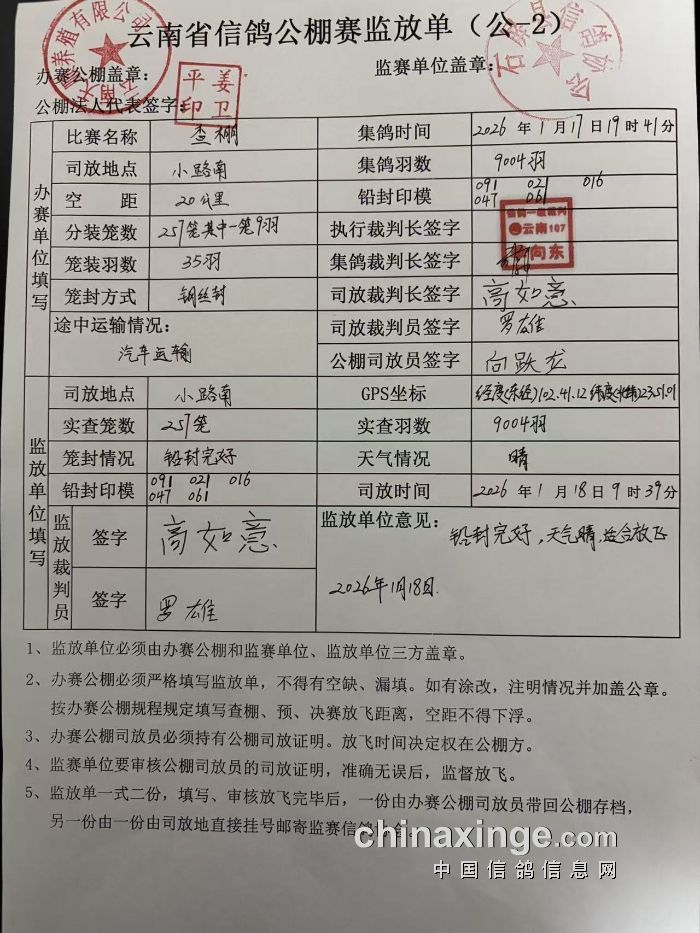 云南省信鸽公棚赛监放单（公-2）
办赛公棚盖章：
监赛单位盖章：
公棚法人代表签字：
养殖有限公司
姜卫平印
石寨县信鸽协会
办赛单位填写
比赛名称 查棚 集鸽时间 2026年1月17日19时41分
司放地点 小路南 集鸽羽数 9004羽
空距 20公里 铅封印模 091 021 016
047 061
分装笼数 257笼其中一笼9羽 执行裁判长签字
信鸽一级裁判
云南107
向东
笼装羽数 35羽 集鸽裁判长签字
笼封方式 钢丝封 司放裁判长签字 高如意
途中运输情况： 司放裁判员签字 罗雄
汽车运输
公棚司放员签字 向跃龙
监放单位填写
司放地点 小路南 GPS坐标 经度(东经)102.41.12 纬度(北纬)23.51.01
实查笼数 257笼 实查羽数 9004羽
笼封情况 铅封完好 天气情况 晴
铅封印模 091 021 016
047 061
司放时间 2026年1月18日9时39分
监放裁判员
签字 高如意
监放单位意见：
铅封完好，天气晴，适合放飞
签字 罗雄
2026年1月18日.
1、监放单位必须由办赛公棚和监赛单位、监放单位三方盖章。
2、办赛公棚必须严格填写监放单，不得有空缺、漏填。如有涂改，注明情况并加盖公章。
按办赛公棚规程规定填写查棚、预、决赛放飞距离，空距不得下浮。
3、办赛公棚司放员必须持有公棚司放证明。放飞时间决定权在公棚方。
4、监赛单位要审核公棚司放员的司放证明，准确无误后，监督放飞。
5、监放单一式二份，填写、审核放飞完毕后，一份由办赛公棚司放员带回公棚存档，
另一份由一份由司放地直接挂号邮寄监赛信鸽协会。
chinaxinge.com
中国信鸽信息网